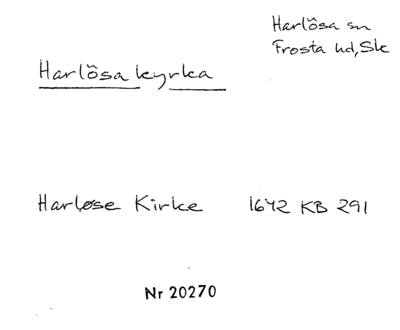 Harlösa sn
Frosta hd, Sk
Harlösa kyrka
Harløse Kirke 1642 KB 291
Nr 20270